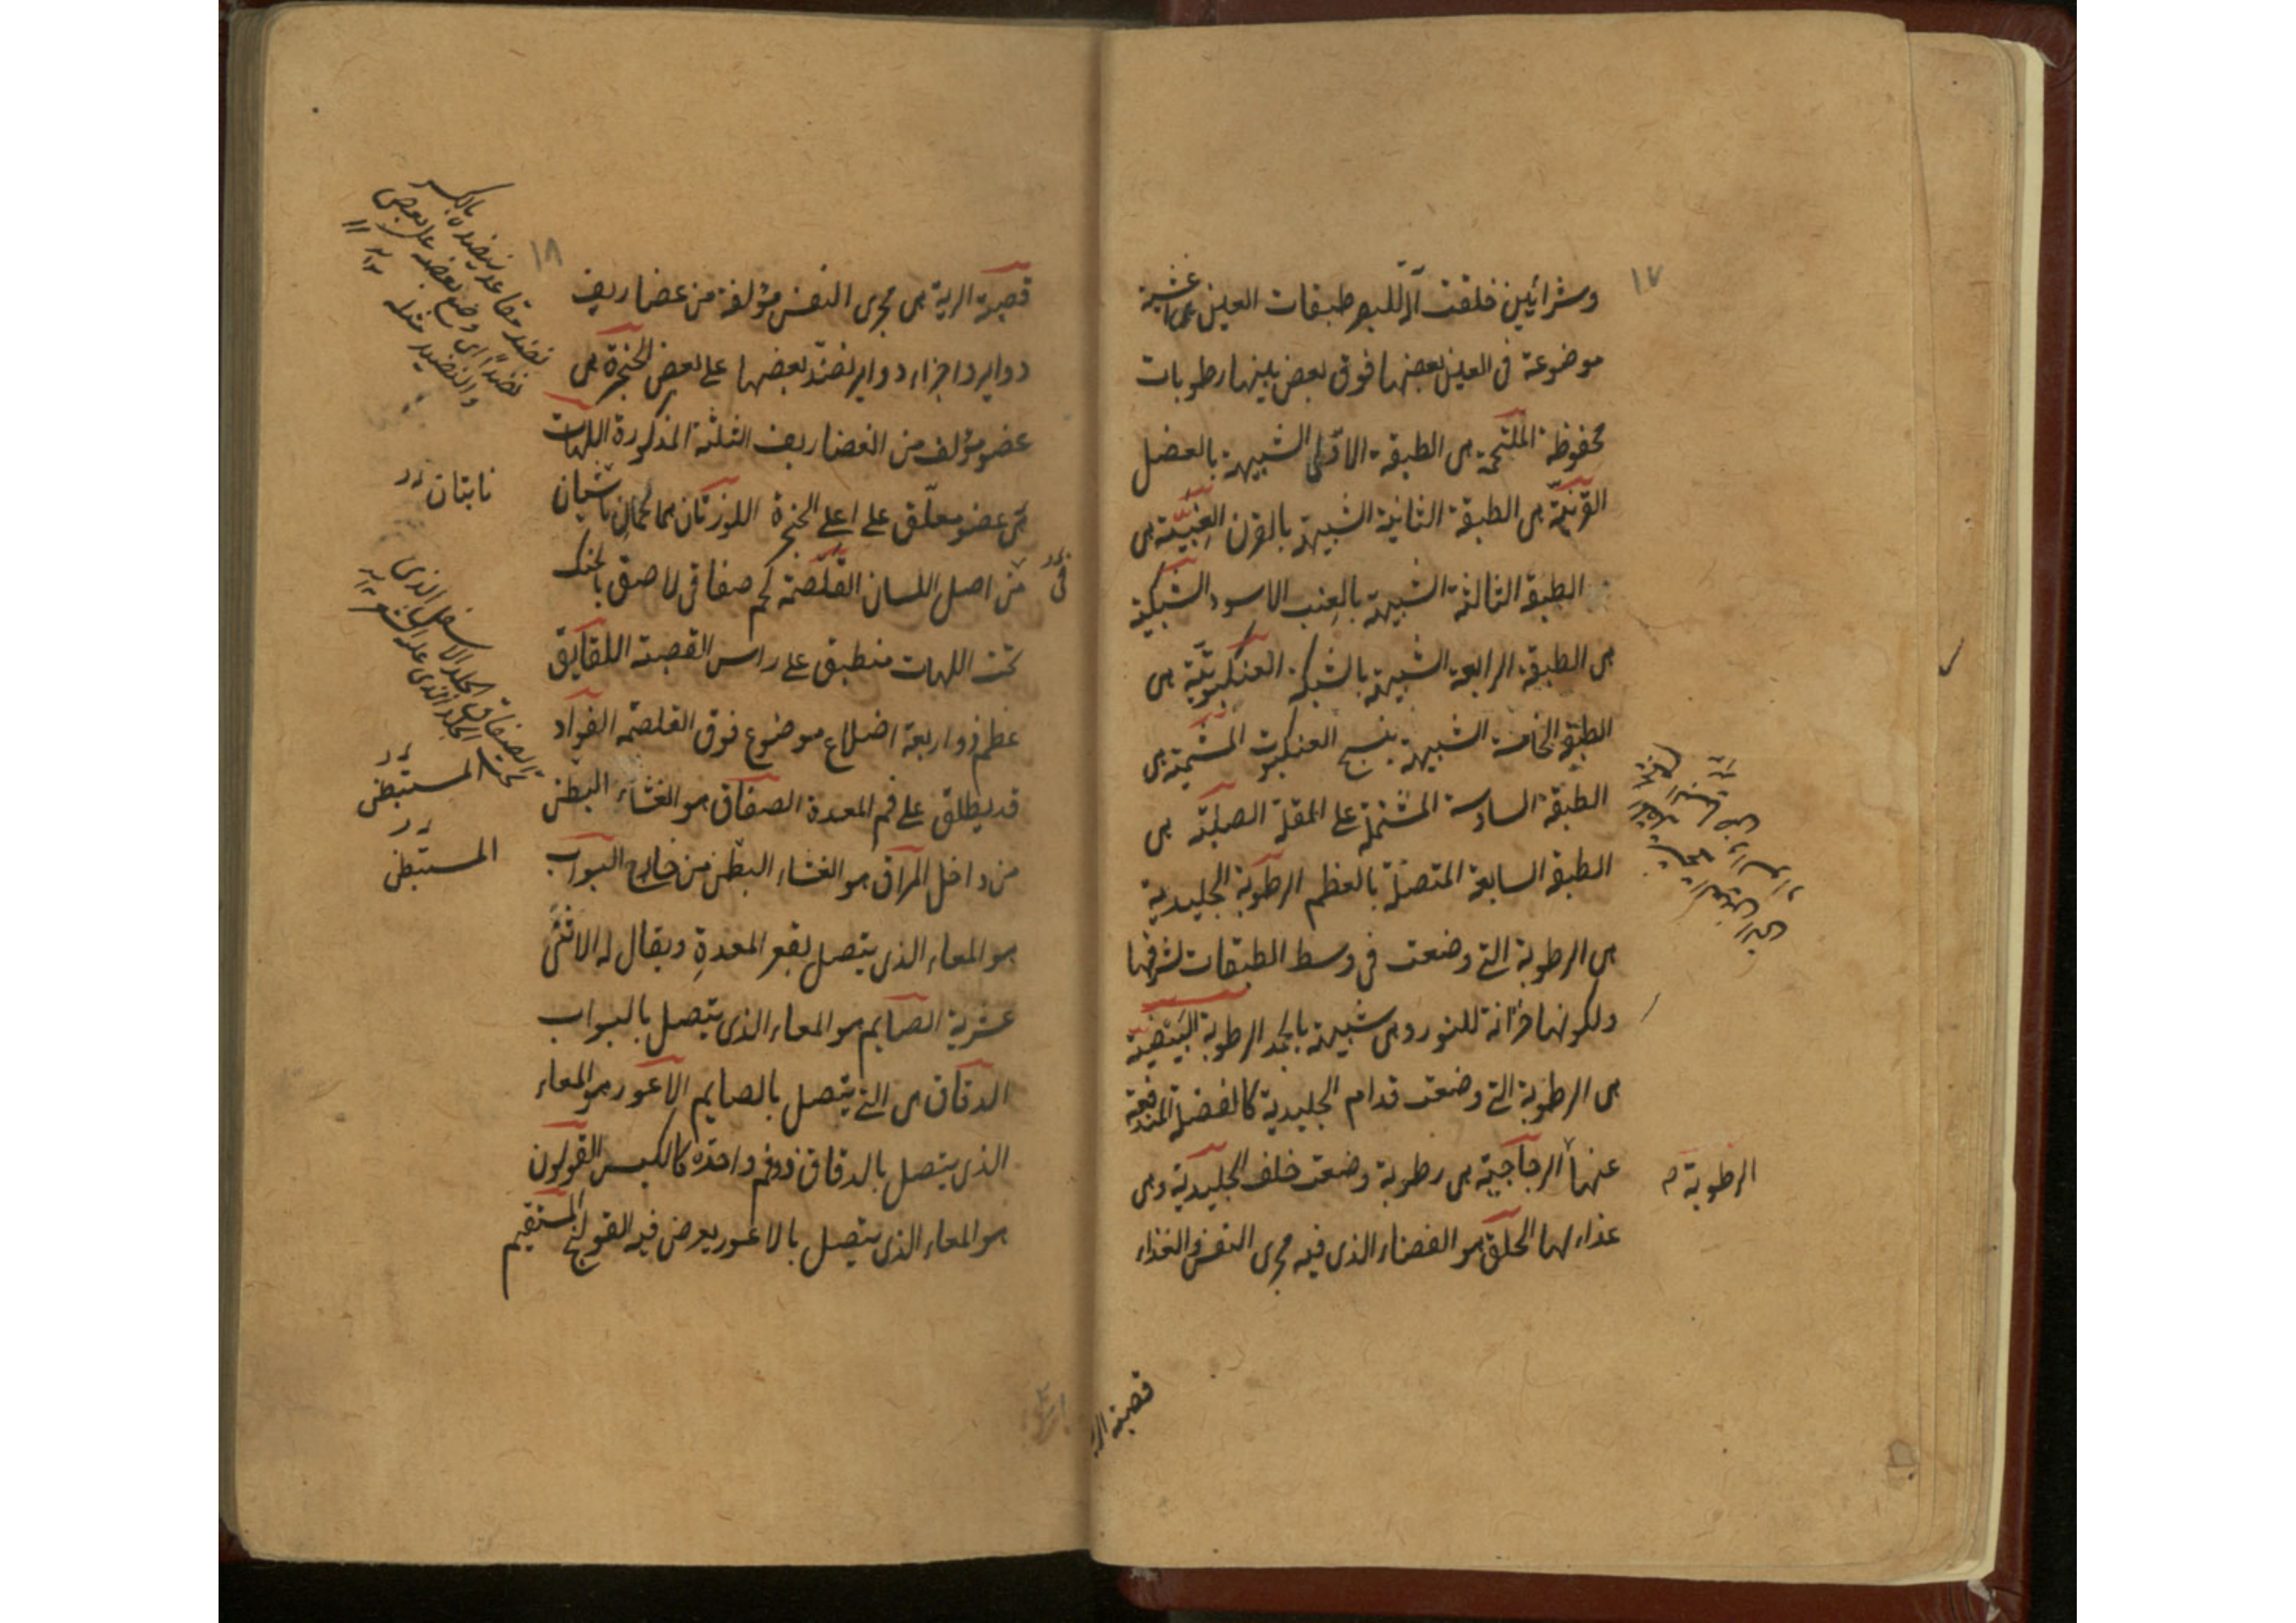 ١٧
وشرائين خلقت آلة للبصر طبقات العين هى اغشية
موضوعة فى العين بعضها فوق بعض بينها رطوبات
محفوظة الملتحمة هى الطبقة الاولى الشبيهة بالعضل
القرنيّة هى الطبقة الثانية الشبيهة بالقرن العِنبيّة هى
الطبقة الثالثة الشبيهة بالعِنب الاسود الشبكية
هى الطبقة الرابعة الشبيهة بالشبكة العنكبوتيّة هى
الطبقة الخامسة الشبيهة بنسج العنكبوت المشيمة هى
الطبقة السادسة المشتملة على المقلة الصلبة هى
الطبقة السابعة المتصلة بالعظم الرطوبة الجليدية
هى الرطوبة التى وضعت فى وسط الطبقات لشرفها
ولكونها خزانة للنور وهى شبيهة بالجمد الرطوبة البيضية
هى الرطوبة التى وضعت قدام الجليدية كالفضلة المندفعة
عنها الزجاجية هى رطوبة وضعت خلف الجليدية وهى
غذاء لها الحلق هو الفضاء الذى فيه مجرى النفس والغذاء
الرطوبة
قصبة الر
١٨
قصبة الرية هى مجرى النفس مؤلفة من غضاريف
دواير واجزاء دواير نضّد بعضها على بعض الحنجرة هى
عضو مؤلف من الغضاريف الثلثة المذكورة اللهات
هى عضو معلّق على اعلى الحنجرة اللوزتان هما لحمان ناشيان
من اصل اللسان الغلصمة لحم صفاقى لاصق بالحنك
تحت اللهات منطبق على راس القصبة اللقايق
عظم ذو اربعة اضلاع موضوع فوق الغلصمة الفواد
قد يطلق على فم المعدة الصفاق هو الغشاء البطن
من داخل المراق هو الغشاء البطن من خارج البواب
هو المعاء الذى يتصل بقعر المعدةِ ويقال له الاثنى
عشرية الصايم هو المعاء الذى يتصل بالبواب
الدقاق هى التى يتصل بالصايم الاعور هو المعاء
الذى يتصل بالدقاق ذو فم واحدة كالكيس القولون
هو المعاء الذى يتصل بالاعور يعرض فيه القولنج المستقيم
فى
نضد متاعه ينضده بالكسر
نضداً اى وضع بعضه على بعض
والتنضيد مثله
نابتان
الصفاق الجلد الاسفل الذى
تحت الجلد الذى عليه الشعر
المستبطن
المستبطن